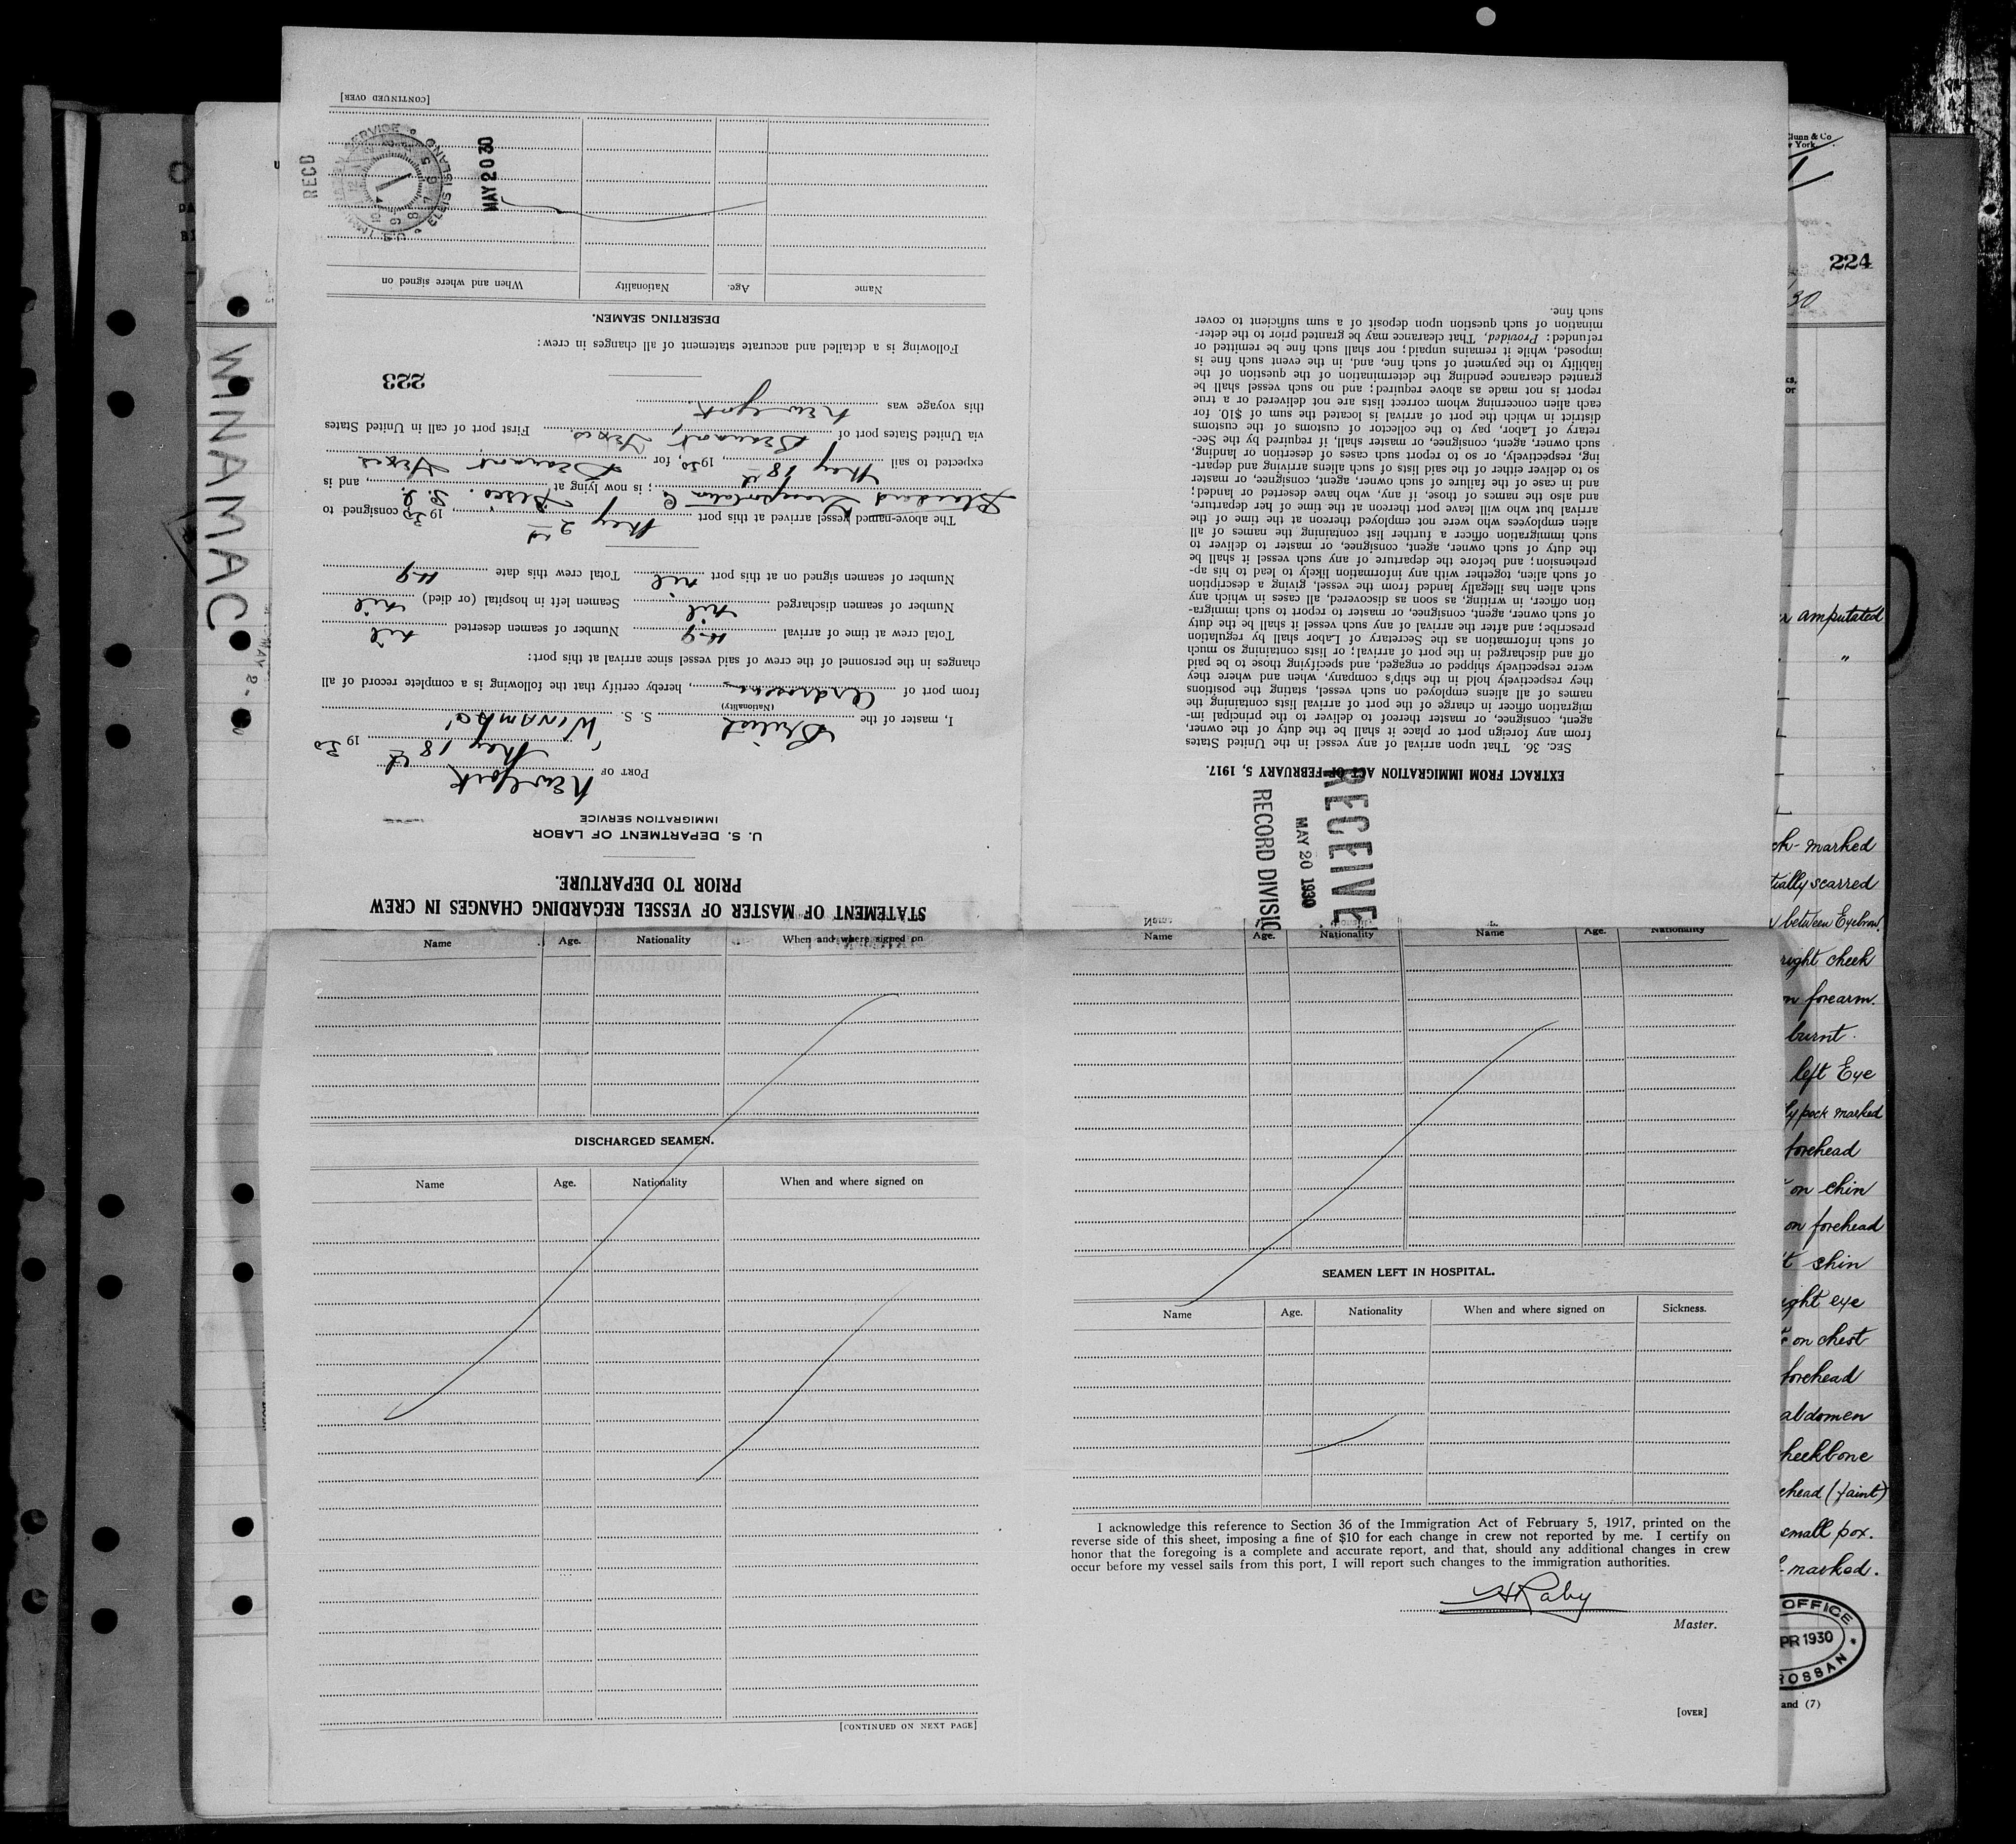 STATEMENT OF MASTER OF VESSEL REGARDING CHANGES IN CREW
PRIOR TO DEPARTURE.
U. S. DEPARTMENT OF LABOR
IMMIGRATION SERVICE
PORT OF New York
May 18th 1930
I, master of the British S. S. "WINAMAC"
(Nationality)
from port of Ardrossan, hereby certify that the following is a complete record of all
changes in the personnel of the crew of said vessel since arrival at this port:
Total crew at time of arrival 49 Number of seamen deserted nil
Number of seamen discharged nil Seamen left in hospital (or died) nil
Number of seamen signed on at this port nil Total crew this date 49
The above-named vessel arrived at this port May 2nd, 1930 consigned to
Standard Transportation Co; is now lying at, and is
expected to sail May 18th, 1930, for Beaumont, Texas
via United States port of Beaumont, Texas. First port of call in United States
this voyage was New York
223
Following is a detailed and accurate statement of all changes in crew:
DESERTING SEAMEN.
Name Age. Nationality When and where signed on
RECD
U.S. IMMIGRATION SERVICE ELLIS ISLAND
MAY 20 30
[CONTINUED OVER]
EXTRACT FROM IMMIGRATION ACT OF FEBRUARY 5, 1917.
SEC. 36. That upon arrival of any vessel in the United States
from any foreign port or place it shall be the duty of the owner,
agent, consignee, or master thereof to deliver to the principal im-
migration officer in charge of the port of arrival lists containing the
names of all aliens employed on such vessel, stating the positions
they respectively hold in the ship's company, when and where they
were respectively shipped or engaged, and specifying those to be paid
off and discharged in the port of arrival; or lists containing so much
of such information as the Secretary of Labor shall by regulation
prescribe; and after the arrival of any such vessel it shall be the duty
of such owner, agent, consignee, or master to report to such immigra-
tion officer, in writing, as soon as discovered, all cases in which any
such alien has illegally landed from the vessel, giving a description
of such alien, together with any information likely to lead to his ap-
prehension; and before the departure of any such vessel it shall be
the duty of such owner, agent, consignee, or master to deliver to
such immigration officer a further list containing the names of all
alien employees who were not employed thereon at the time of the
arrival but who will leave port thereon at the time of her departure,
and also the names of those, if any, who have deserted or landed;
and in case of the failure of such owner, agent, consignee, or master
so to deliver either of the said lists of such aliens arriving and depart-
ing, respectively, or so to report such cases of desertion or landing,
such owner, agent, consignee, or master shall, if required by the Sec-
retary of Labor, pay to the collector of customs of the customs
district in which the port of arrival is located the sum of $10. for
each alien concerning whom correct lists are not delivered or a true
report is not made as above required; and no such vessel shall be
granted clearance pending the determination of the question of the
liability to the payment of such fine, and, in the event such fine is
imposed, while it remains unpaid; nor shall such fine be remitted or
refunded: Provided, That clearance may be granted prior to the deter-
mination of such question upon deposit of a sum sufficient to cover
such fine.
RECEIVE
MAY 20 1930
RECORD DIVISIO
Name Age. Nationality When and where signed on
DISCHARGED SEAMEN.
Name Age. Nationality When and where signed on
[CONTINUED ON NEXT PAGE]
Name Age. Nationality Name Age. Nationality
SEAMEN LEFT IN HOSPITAL.
Name Age. Nationality When and where signed on Sickness.
I acknowledge this reference to Section 36 of the Immigration Act of February 5, 1917, printed on the
reverse side of this sheet, imposing a fine of $10 for each change in crew not reported by me. I certify on
honor that the foregoing is a complete and accurate report, and that, should any additional changes in crew
occur before my vessel sails from this port, I will report such changes to the immigration authorities.
H Raby
Master.
[OVER]
WINAMAC
MAY 2 -
Gunn & Co
York
224
30
amputated
"
ck-marked
tially scarred
between Eyebrow
right cheek
on forearm.
burnt.
left Eye
ly pock marked
forehead
on chin
on forehead
t shin
ight eye
on chest
forehead
abdomen
heekbone
ehead (faint)
small pox.
- marked.
OFFICE
PR 1930
ROSSAN
and (7)